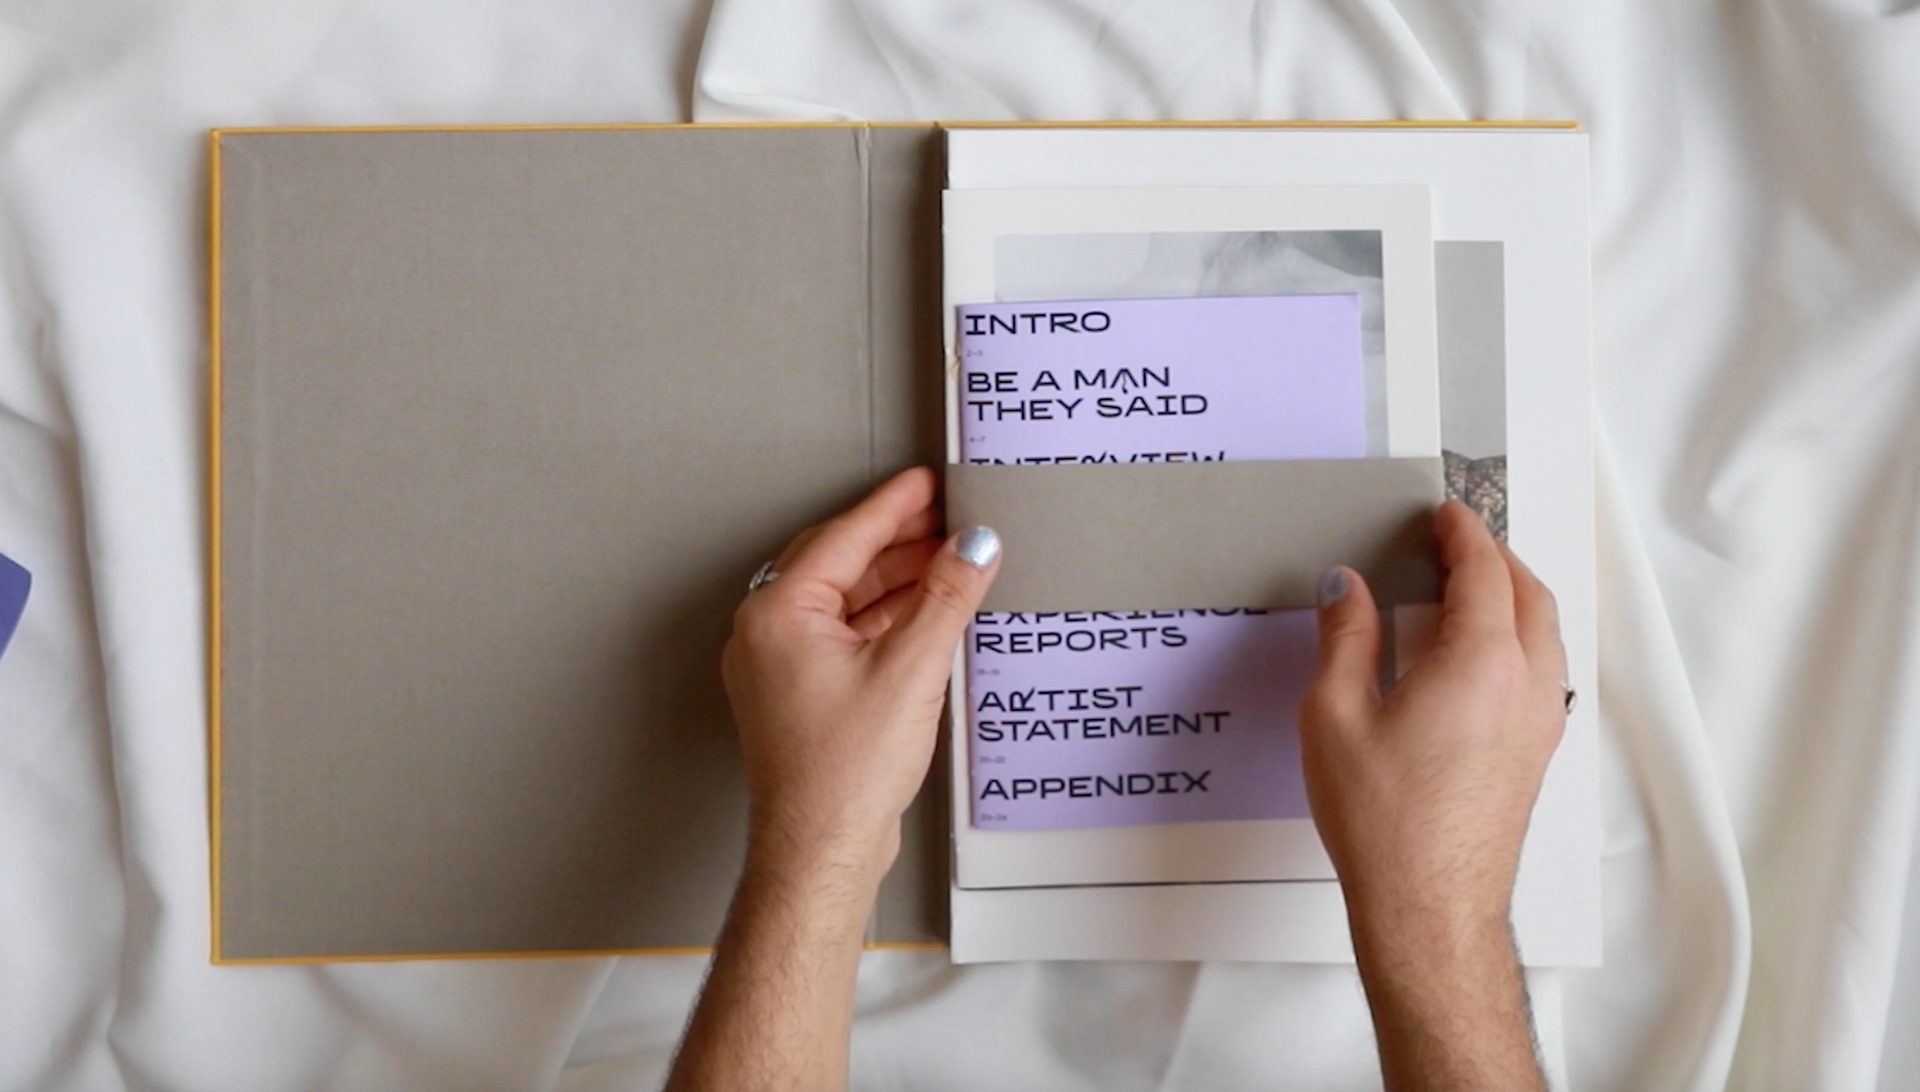 INTRO
BE A MAN
THEY SAID
4–7
INTERVIEW
EXPERIENCE
REPORTS
ARTIST
STATEMENT
20–22
APPENDIX
23–24